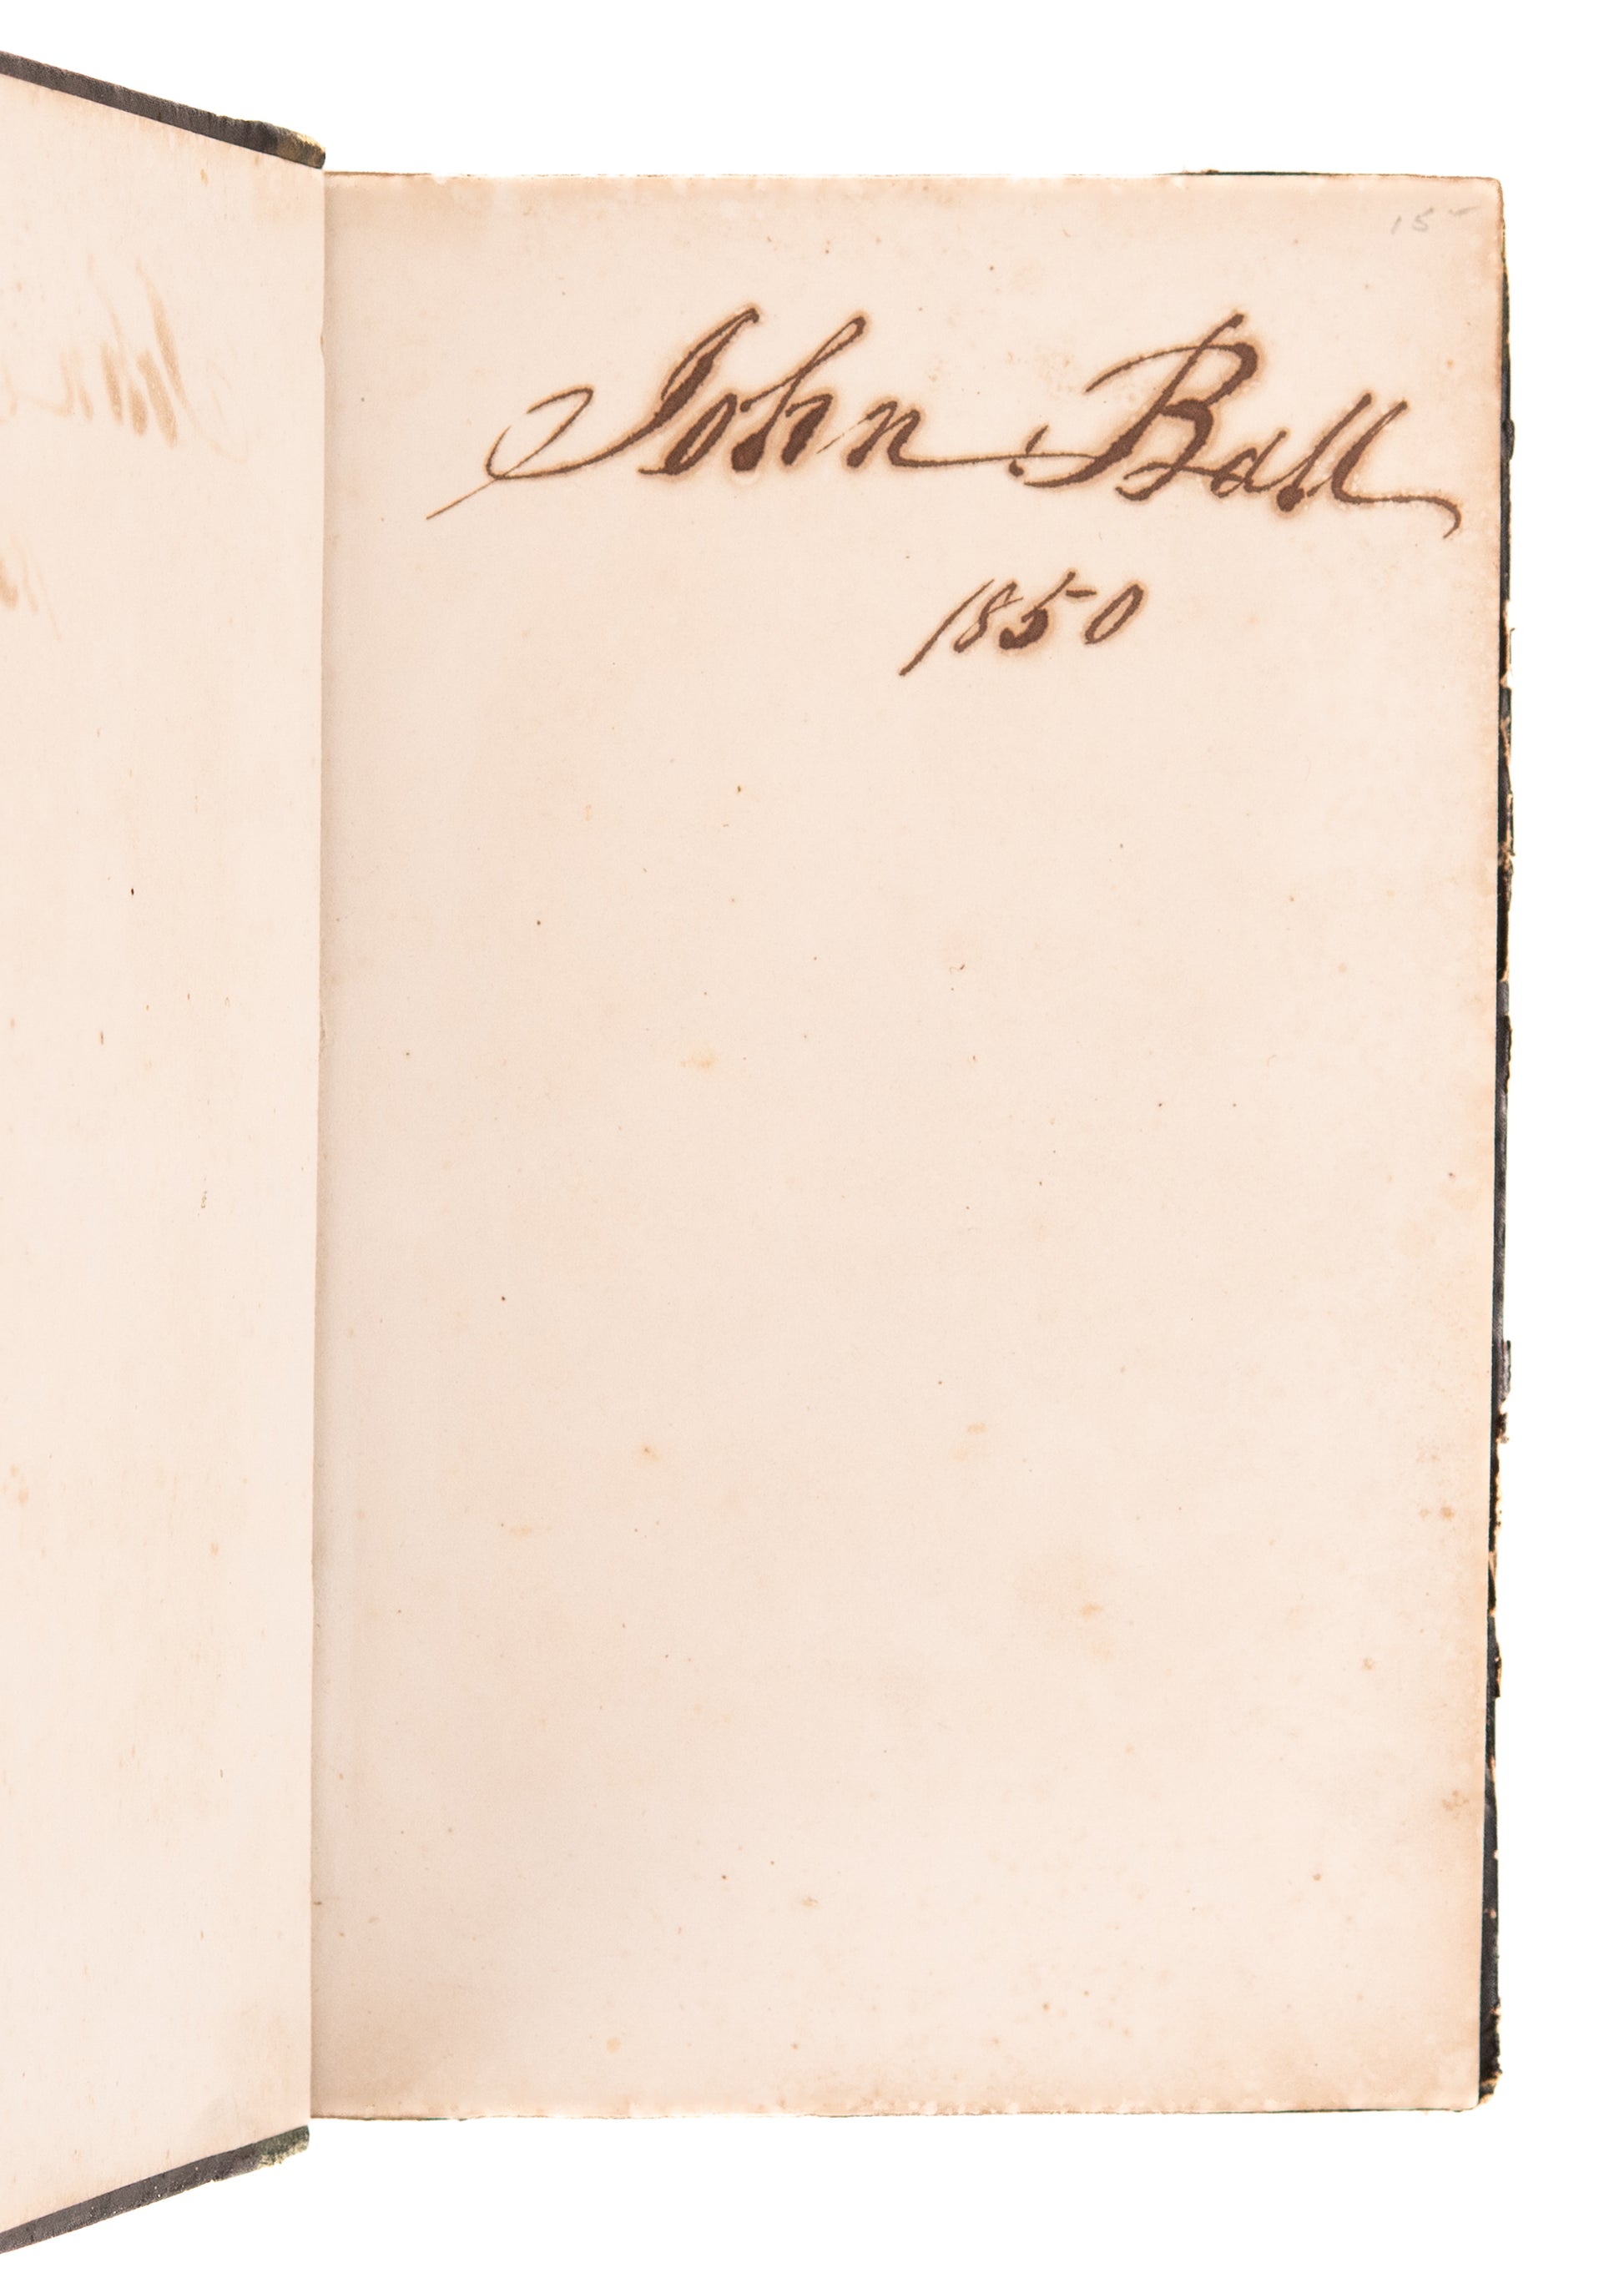 15
John Ball
1850